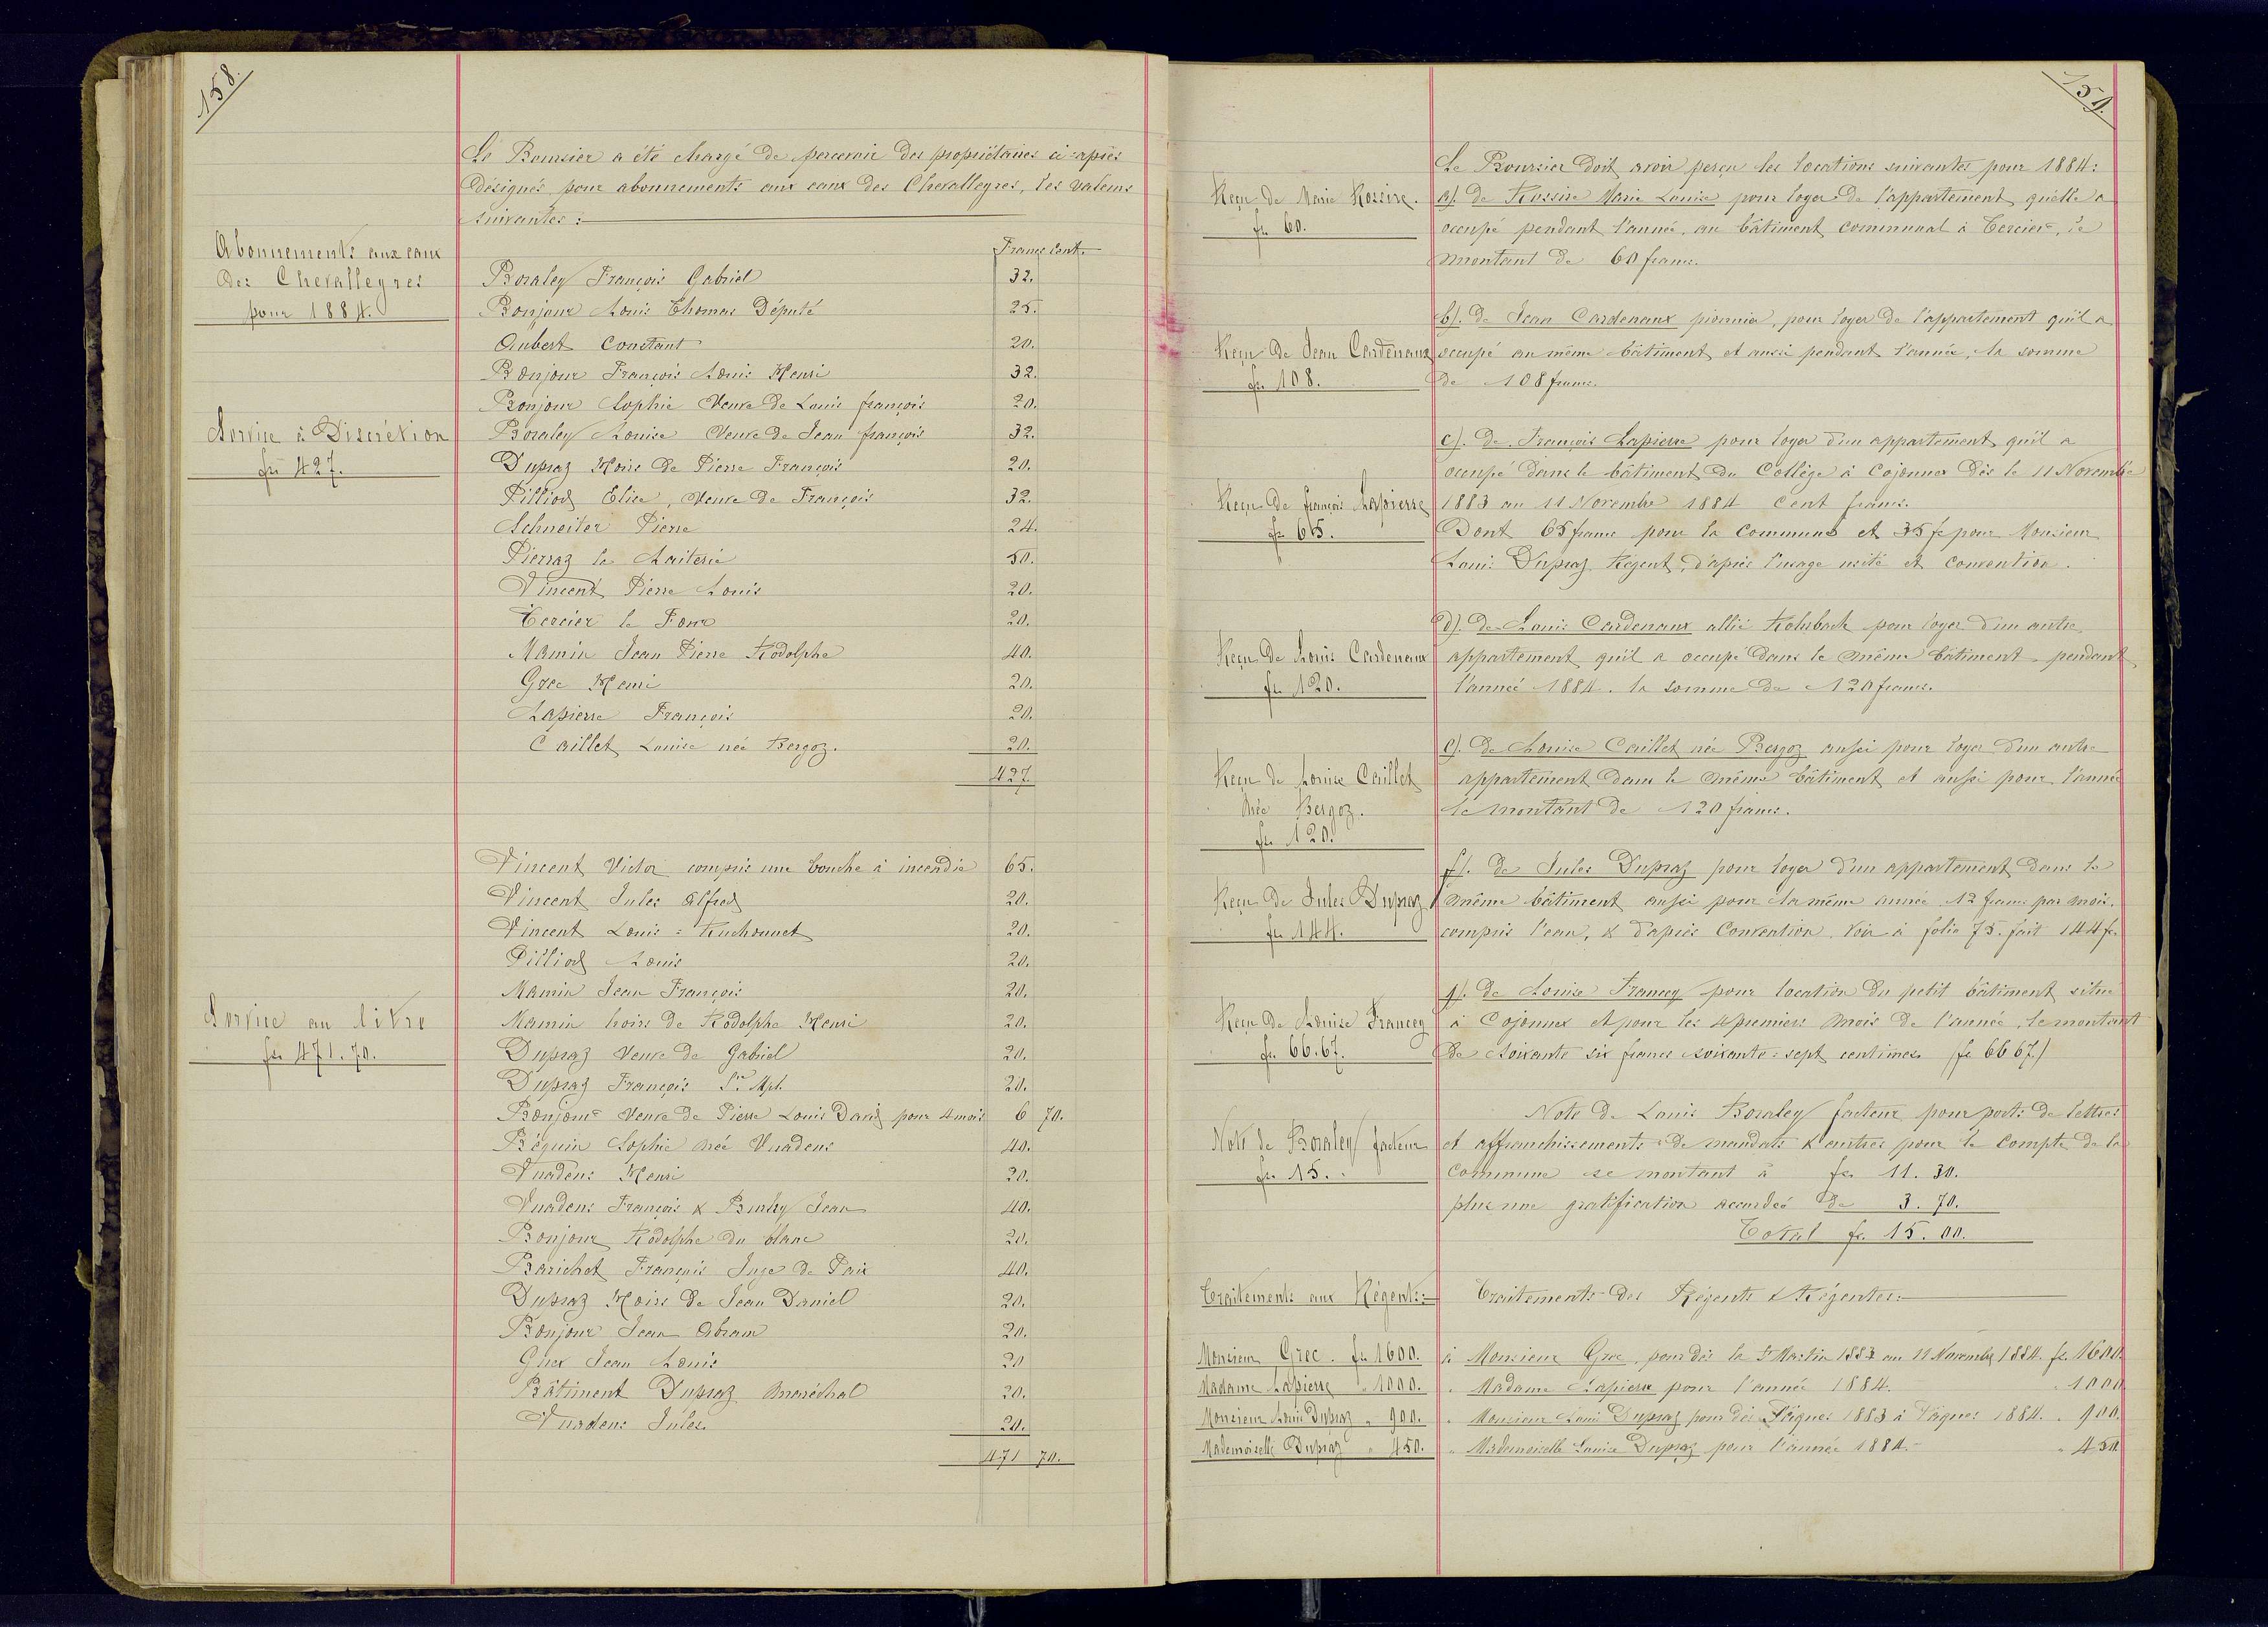 158.
Le Boursier a été chargé de percevoir des propriétaires ci-après
désignés, pour abonnements aux eaux des Chevalleyres, les valeurs
suivantes :
Abonnements aux eaux
des Chevalleyres
pour 1884.
Francs Cent.
Boraley François Gabriel 32.
Bonjour Louis Thomas Député 25.
Aubert Constant 20.
Bonjour François Louis Henri 32.
Bonjour Sophie Veuve de Louis françois 20.
Service à Discrétion
fr. 427.
Boraley Louise Veuve de Jean françois 32.
Dupraz Hoirs de Pierre François 20.
Pilliod Elise, Veuve de François 32.
Schneiter Pierre 24.
Pierraz la Laiterie 50.
Vincent Pierre Louis 20.
Tercier le Four 20.
Mamin Jean Pierre Rodolphe 40.
Grec Henri 20.
Lapierre François 20.
Caillet Louise née Bergoz. 20.
427.
Vincent Victor compris une bouche à incendie 65.
Vincent Jules Alfred 20.
Vincent Louis = Ruchonnet 20.
Pilliod Louis 20.
Mamin Jean François 20.
Service au litre
fr. 471.70.
Mamin hoirs de Rodolphe Henri 20.
Dupraz Veuve de Gabriel 20.
Dupraz François 20.
Bonjour Veuve de Pierre Louis David pour 4 mois 6 70.
Béguin Sophie née Vuadens 40.
Vuadens Henri 20.
Vuadens François & Jean 40.
Bonjour Rodolphe du blanc 20.
Barichet François Juge de Paix 40.
Dupraz Hoirs de Jean Daniel 20.
Bonjour Jean Abram 20.
Guex Jean Louis 20
Bâtiment Dupraz maréchal 20.
Vuadens Jules. 20.
471 70.
159.
Le Boursier doit avoir perçu les locations suivantes pour 1884 :
Reçu de Marie Rossire.
fr. 60.
a). de Rossire Marie Louise pour loyer de l'appartement qu'elle a
occupé pendant l'année, au bâtiment communal à Tercier, le
montant de 60 francs.
Reçu de Jean Cardenaux
fr. 108.
b). de Jean Cardenaux pionnier, pour loyer de l'appartement qu'il a
occupé au même bâtiment et aussi pendant l'année, la somme
de 108 francs.
Reçu de françois Lapierre
fr. 65.
c). de François Lapierre pour loyer d'un appartement qu'il a
occupé dans le bâtiment du Collège à Cojonnex dès le 11 Novembre
1883 au 11 Novembre 1884 cent francs.
Dont 65 francs pour la Commune et 35 fr pour Monsieur
Louis Dupraz Régent, d'après l'usage usité et convention.
Reçu de Louis Cardenaux
fr. 120.
d). de Louis Cardenaux allié Rohrbach pour loyer d'un autre
appartement qu'il a occupé dans le même bâtiment pendant
l'année 1884. la somme de 120 francs.
Reçu de Louise Caillet
née Bergoz.
fr. 120.
e). de Louise Caillet née Bergoz aussi pour loyer d'un autre
appartement dans le même bâtiment et aussi pour l'année
le montant de 120 francs.
Reçu de Jules Dupraz
fr. 144.
f). de Jules Dupraz pour loyer d'un appartement dans le
même bâtiment aussi pour la même année 12 francs par mois.
compris l'eau, & d'après Convention. Voir à folio 75. fait 144 fr.
Reçu de Louise Francey
fr. 66.67.
g). de Louise Francey pour location du petit bâtiment situé
à Cojonnex et pour les 4 premiers mois de l'année, le montant
de soixante six francs soixante-sept centimes (fr. 66 67.)
Note de Boraley facteur
fr. 15.
Note de Louis Boraley facteur pour ports de lettres
et affranchissements de mandats & autres pour le compte de la
Commune se montant à fr. 11. 30.
plus une gratification accordée de 3. 70.
Total fr. 15. 00.
Traitements aux Régents :
Traitements des Régents & Régentes :
Monsieur Grec. fr. 1600. à Monsieur Grec, pour dès la St Martin 1883 au 11 Novembre 1884. fr. 1600.
Madame Lapierre " 1000. " Madame Lapierre pour l'année 1884. " 1000.
Monsieur Louis Dupraz " 900. " Monsieur Louis Dupraz pour dès Pâques 1883 à Pâques 1884. " 900.
Mademoiselle Dupraz " 450. " Mademoiselle Louise Dupraz pour l'année 1884. " 450.